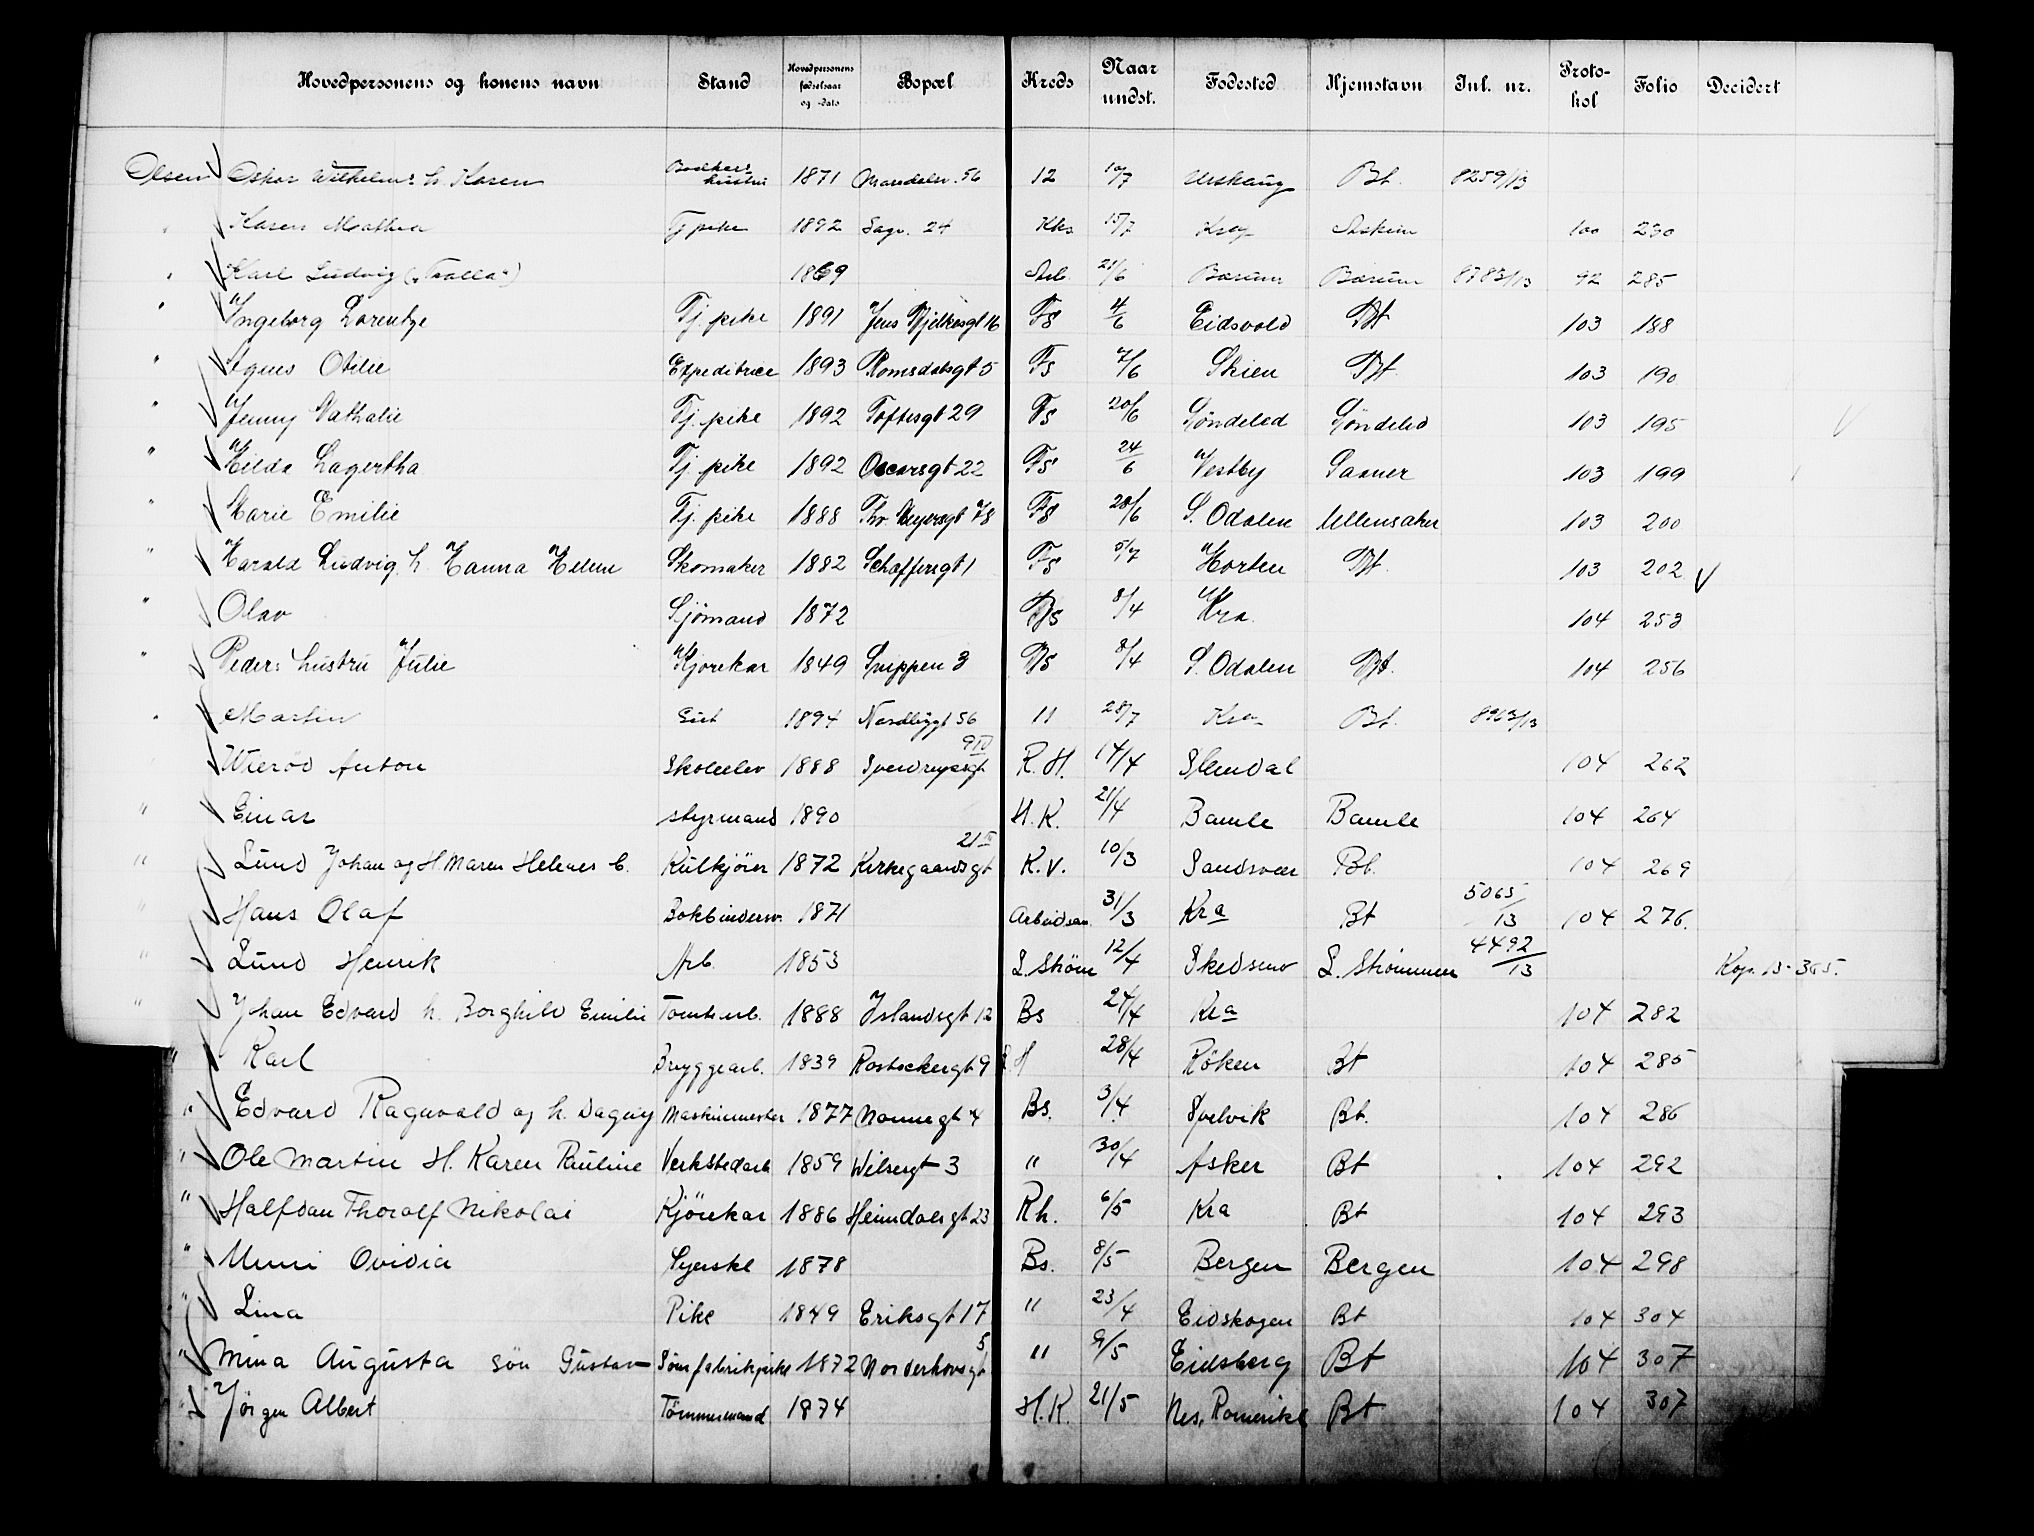 Hovedpersonens og konens navn Stand Hovedpersonens fødselsaar og -dato Bopæl Kreds Naar undst. Fødested Hjemstavn Inl. nr. Protokol Folio Decidert
Olsen Oskar Wilhelms h. Karen hustru 1871 Maridalsv. 56 12 10/7 Urskaug Bt. 8259/13
" Karen Mathea Tj pike 1892 Sagv. 24 Kks 15/7 Kra Askim 100 230
" Karl Ludvig ("Tralla") 1869 Arb. 21/6 Bærum Bærum 8783/13 92 285
" Ingeborg Lorentze Tj. pike 1891 Jens Bjelkesgt 16 Fs 4/6 Eidsvold Bt 103 188
" Agnes Otilie Expeditrice 1893 Romsdalsgt 5 Fs 7/6 Skien Bt. 103 190
" Jenny Nathalie Tj. pike 1892 Toftesgt 29 Fs 20/6 Søndeled Søndeled 103 195
" Hilda Lagertha Tj. pike 1892 Oscarsgt 22 Fs 24/6 Vestby Saaner 103 199
" Marie Emilie Tj. pike 1888 Thv. Meyersgt 78 Fs 28/6 S. Odalen Ullensaker 103 200
" Harald Ludvig. h. Hanna Helene Skomaker 1882 Schæffersgt 1 Fs 5/7 Horten Bt. 103 202 V
" Olav Sjömand 1872 Bs 8/4 Kra. 104 253
" Peder: hustru Julie Kjørekar 1849 Snippen 3 Bs 8/4 S. Odalen Bt. 104 256
" Martin 1894 Nordbygt 56 11 28/7 Kra Bt. 8963/13
Wierød Anton Skoleelev 1888 Sverdrupsgt 9 IV R. H. 14/4 104 262
" Einar styrmand 1890 H. K. 21/4 Bamle Bamle 104 264
" Lund Johan og H. Maren Helenes b. Kulkjører 1872 Kirkegaardsgt 21 K. V. 10/3 Sandsvær Bt. 104 269
" Hans Olaf Bokbindersv. 1871 Arbeidsan 31/3 Kra Bt 5065/13 104 276.
" Lund Henrik Arb. 1853 L. Strøm 12/4 Skedsmo L. Strømmen 4492/13 Kop. 13-365.
" Johan Edvard h. Borghild Emilie Tomtearb. 1888 Islandsgt 12 Bs 24/4 Kra 104 282
" Karl Bryggearb. 1839 Rostockergt 9 R H 28/4 Røken Bt 104 285
" Edvard Ragnvald og h. Dagny Maskinmester 1877 Nonnegt 4 Bs. 3/4 Svelvik Bt. 104 286
" Ole Martin H. Karen Pauline Verkstedarb 1859 Wilsesgt 3 " 30/4 Asker Bt 104 292
" Halfdan Thoralf Nikolai Kjørekar 1886 Heimdalsgt 23 Rh. 6/5 Kra Bt 104 293
" Unni Ovidia Syerske 1878 Bs. 8/5 Bergen Bergen 104 298
" Lina Pike 1849 Eriksgt 17 " 23/4 Eidskogen Bt 104 304
" Mina Augusta søn Gustav Sömfabrikpike 1872 Norderhovsgt 5 " 9/5 Eidsberg Bt 104 307
" Jörgen Albert Tömmermand 1874 H. K. 21/5 Nes, Romerike Bt 104 307